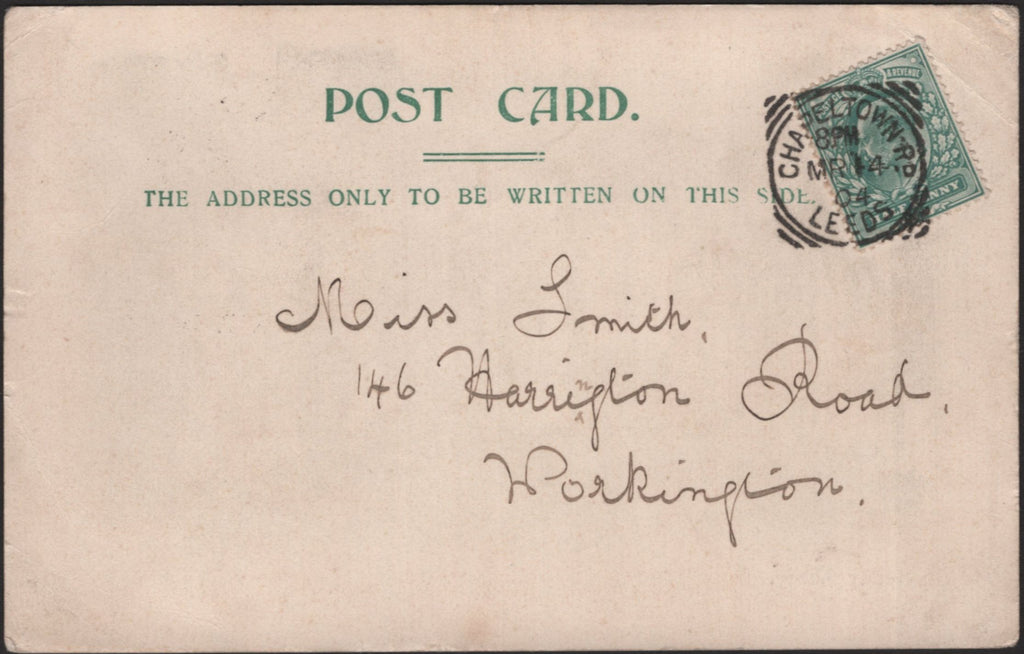 POST CARD.
THE ADDRESS ONLY TO BE WRITTEN ON THIS SIDE.
& REVENUE
NNY
CHAPELTOWN-RD
8PM
MR 14
04
LEEDS
Miss Smith,
146 Harrington Road,
Workington.